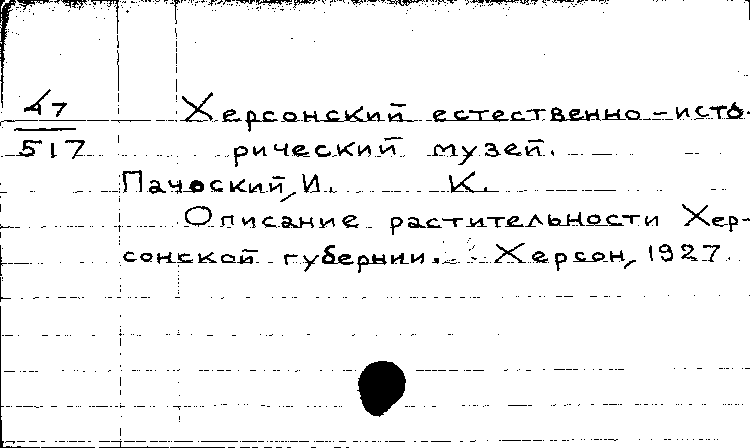 47 Херсонский естественно-исто-
517 рический музей.
Пачоский, И. К.
Описание растительности Хер-
сонской губернии. Херсон, 1927.